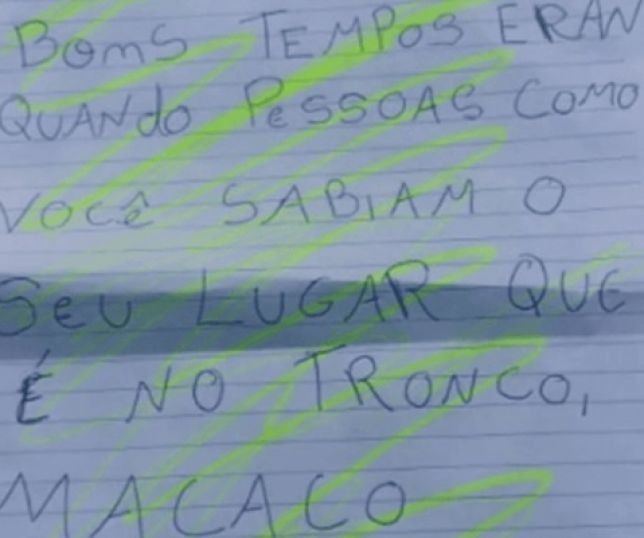 BOMS TEMPOS ERAM
QUANDO PESSOAS COMO
VOCÊ SABIAM O
SEU LUGAR QUE
É NO TRONCO,
MACACO